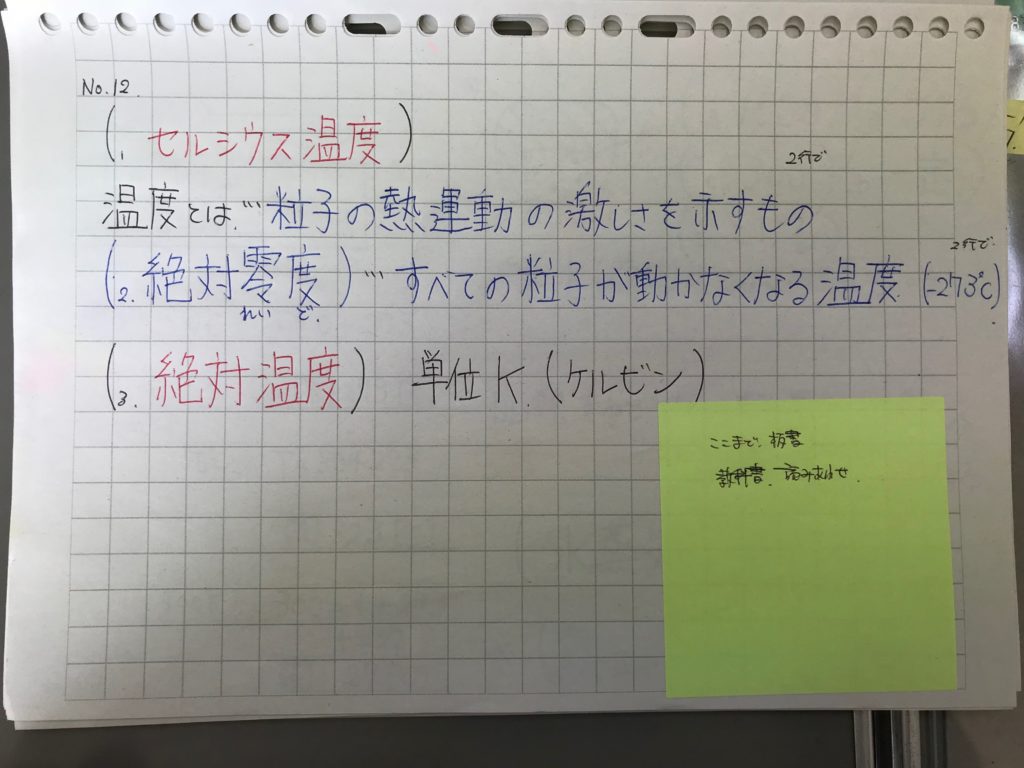 No.12.
(1. セルシウス温度)
2行で
温度とは… 粒子の熱運動の激しさを示すもの
2行で.
(2. 絶対零度) … すべての粒子が動かなくなる温度 (-273℃).
れい ど.
(3. 絶対温度) 単位 K. (ケルビン)
ここまで. 板書
教科書. 読みあわせ.